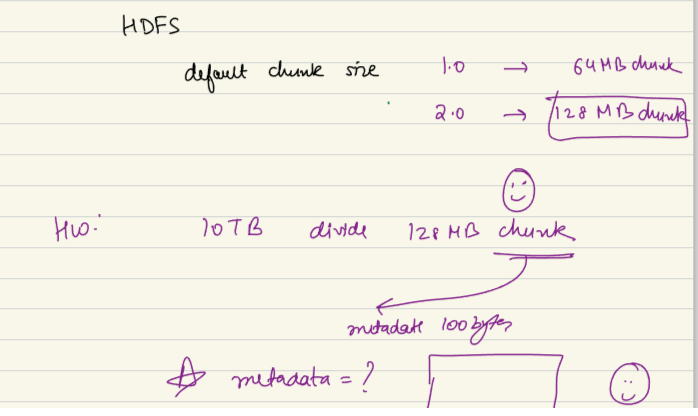 HDFS
default chunk size 1.0 → 64 MB chunk
2.0 → 128 MB chunk
HW: 10 TB divide 128 MB chunk
metadata 100 bytes
metadata = ?